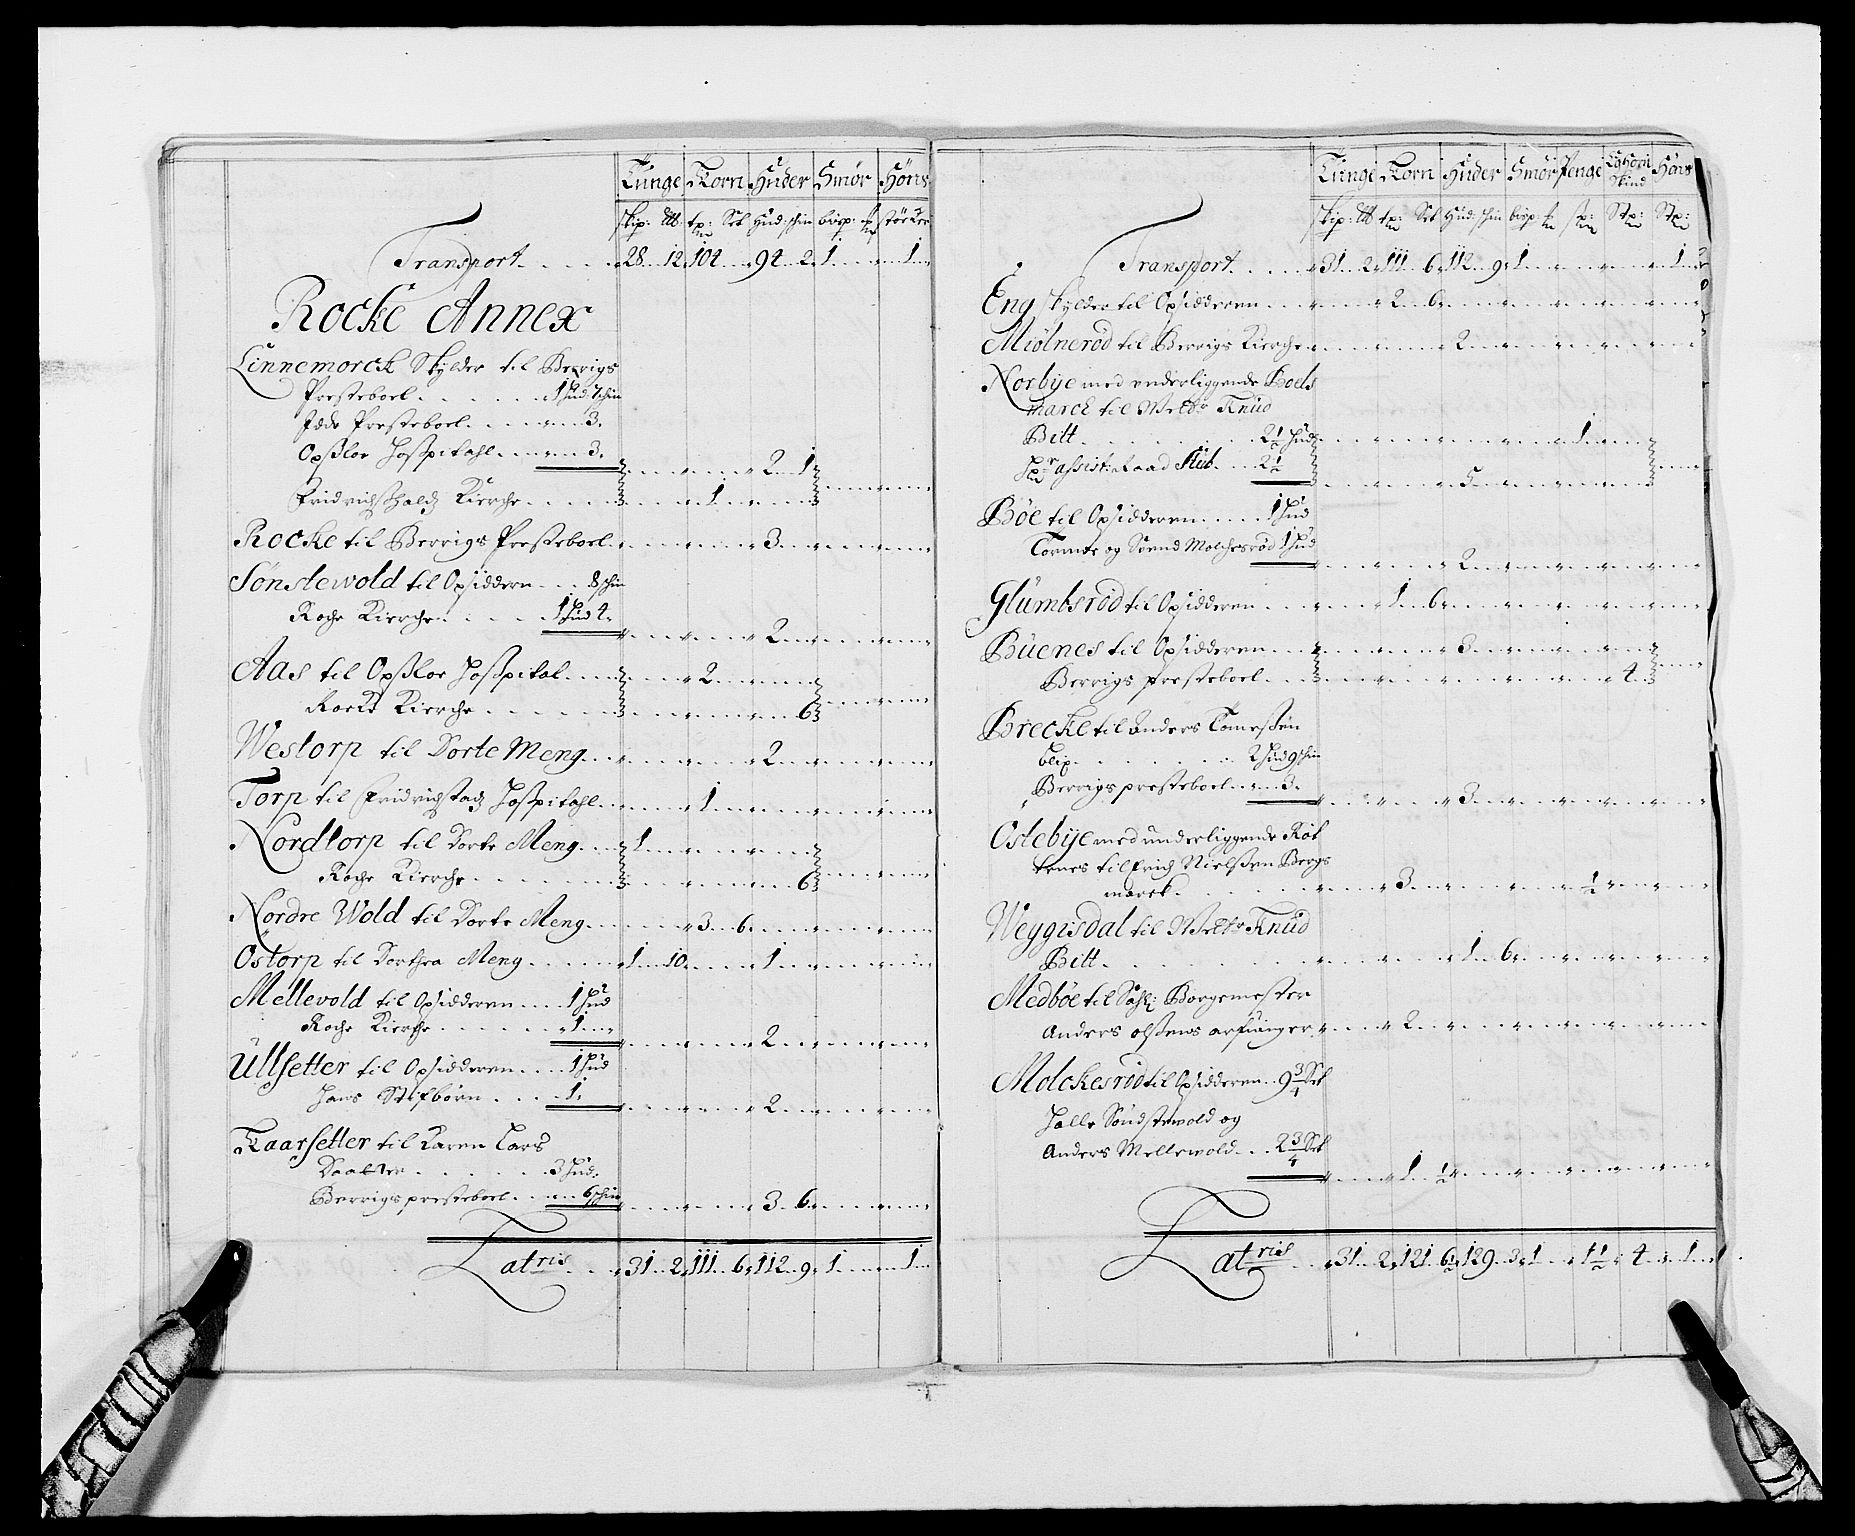 Tunge Korn Huder Smør Høns
skip: tp: Set Hud: skin bisp: støcker
Transport 28 12 104 94 2 1 1
Rocke Annex
Linnemorck Skylder til Berrigs
Presteboel 1 Hud: 7 skin
Jdde Presteboel 3.
Opsloe Hospitahl 3. 2 1
Fridrichshalds Kierche 1
Rocke til Berrigs Presteboel 3
Sønstewold til Opsiddern 8 skin
Roche Kierche 1 Hud 4 2
Aas til Opsloe Hospital 2
Rocke Kierche 6
Westorp til Dorte Meng 2
Torp til Fridrichstads Hospitahl 1
Nordtorp til Dorte Meng 1
Roche Kierche 6
Nordre Wold til Dorte Meng 3 6
Ostorp til Dorthea Meng 1 10 1
Mellevold til Opsidderen 1 Hud
Roche Kierche 1 2
Ullsetter til Opsidderen 1 Hud
Hans Stifbørn 1. 2
Kaarsetter til Karen Lars
Daatter 3 Hud.
Berrigs presteboel 6 skin 3 6
Latris 31 2 111 6 112 9 1 1
Tunge Korn Huder Smør Penge Skind Høns
skip: tp: Set Hud: skin bisp: Stp: Stp:
Transport 31 2 111 6 112 9 1 1
Eng skylder til Opsidderen 2 6
Miølnerød til Berrigs Kierche 2
Norbye med underliggende Boels
march til Welbr Knud
Bitt 2½ Hud 1
assist: raad Stub 2½ 5
Bøe til Opsidderen 1 Hud
Tormoe og Soend Molchesrød 1 Hud 2
Glumbsrød til Opsidderen 1 6
Buenes til Opsidderen 3
Berrigs presteboel 4
Brecke til Anders Tomessøn
2 Hud 9 skin
Berrigs presteboel 3. 3
Ostebye med underliggende Røt
tenes til Erich Nielssen Bergs
march 3 ½
Weygisdal til Welbr Knud
Bitt 1 6
Medbøe til Sahl: Borgemester
Anders Olssens arfvinger 2
Molckesrød til Opsidderen 9¾ Set
Halle Sundstewold og
Anders Mellewold 2¾ Set 1 ½
Latris 31 2 121 6½ 129 3 1 1½ 4 1